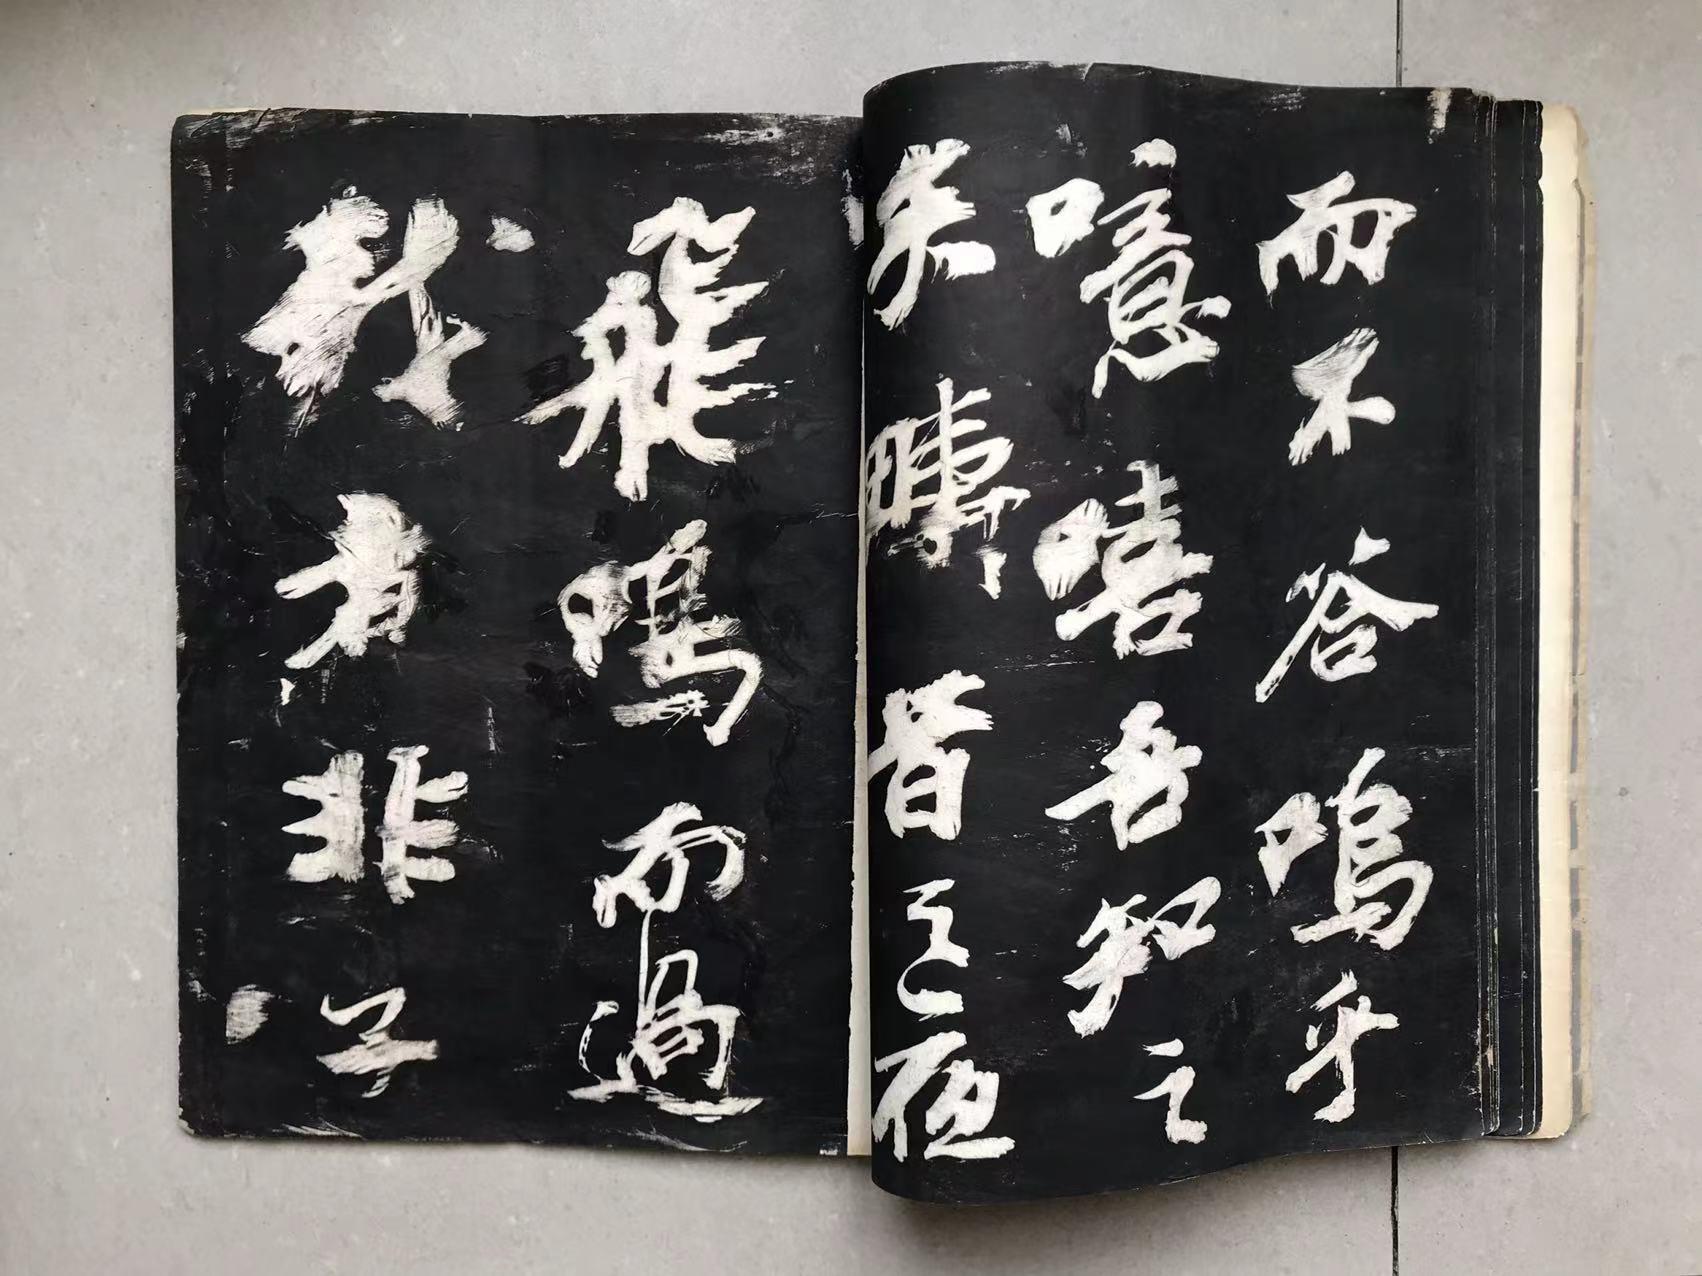 而不答嗚乎
噫嘻吾知之
矣疇昔之夜
飛鳴而過
我者非子